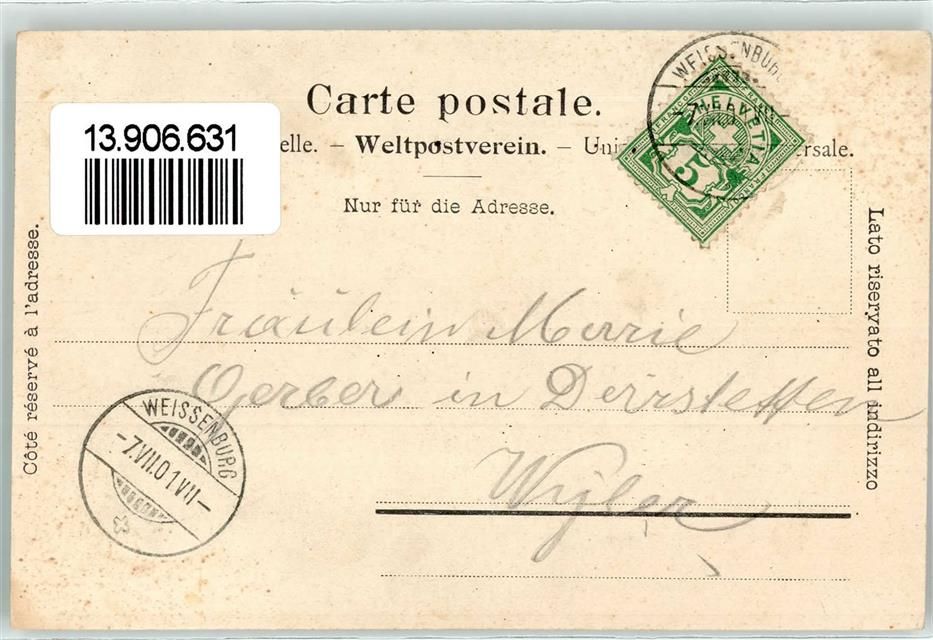 Carte postale.
13.906.631
elle. – Weltpostverein. – Uni rsale.
Nur für die Adresse.
WEISSENBURG
-7.
HELVETIA
5
FRANCO
Côté réservé à l'adresse.
Lato riservato all indirizzo
Fräulein Marie
Gerber in Derrstetten
Wyler
WEISSENBURG
-7.VII.01 VII-